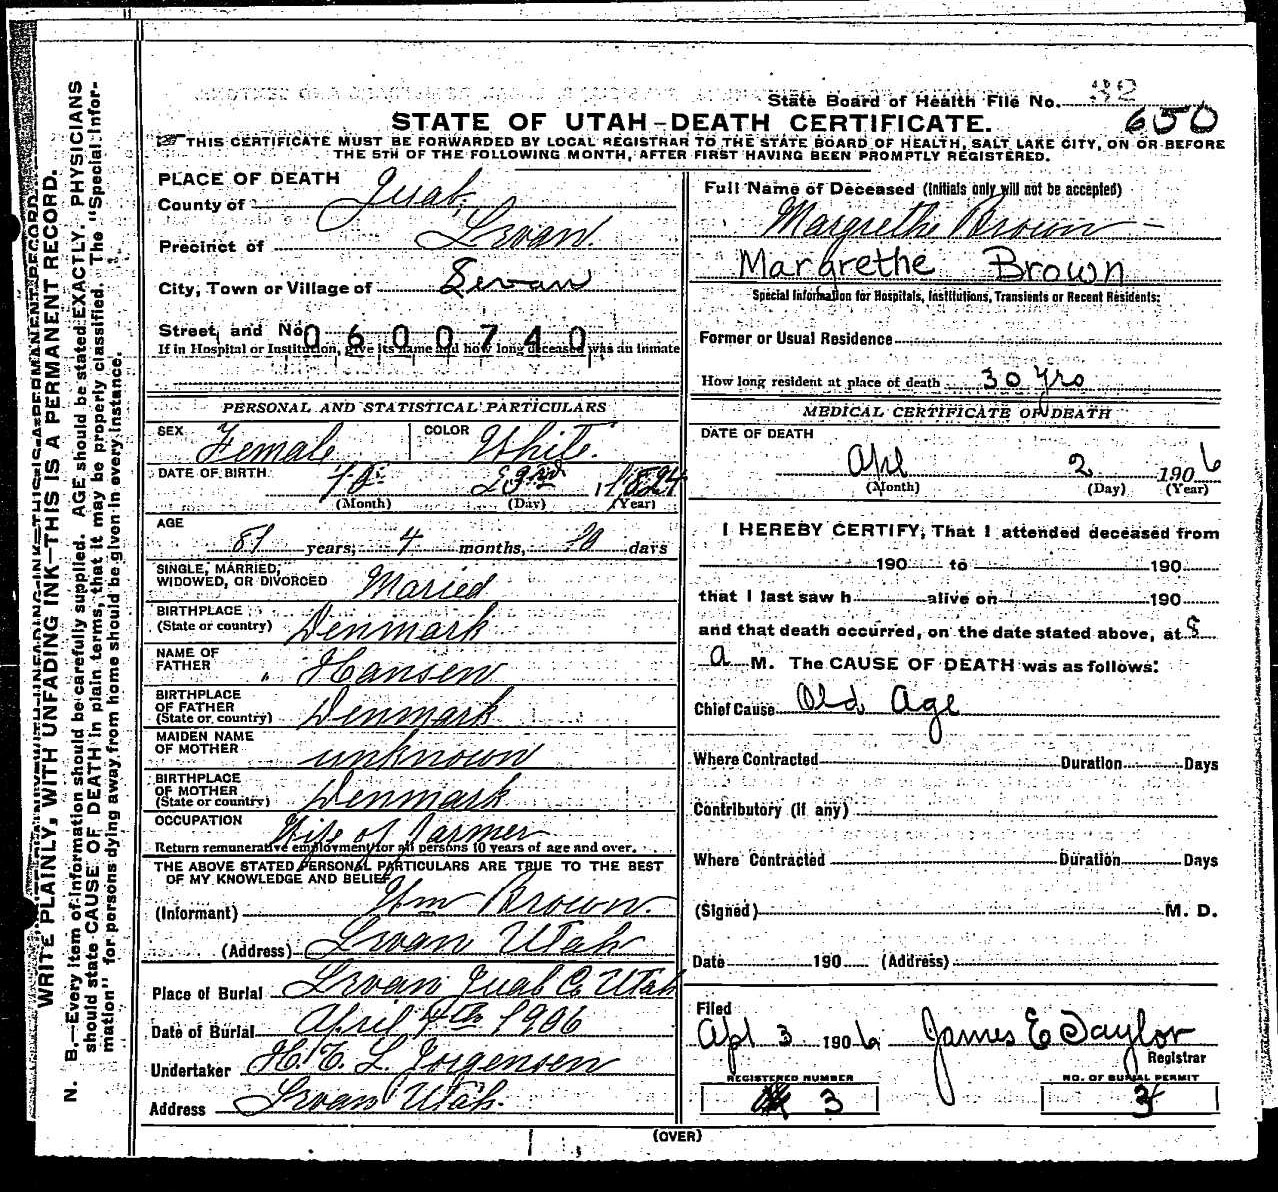 State Board of Health File No. 32
650
STATE OF UTAH-DEATH CERTIFICATE.
THIS CERTIFICATE MUST BE FORWARDED BY LOCAL REGISTRAR TO THE STATE BOARD OF HEALTH, SALT LAKE CITY, ON OR BEFORE
THE 5TH OF THE FOLLOWING MONTH, AFTER FIRST HAVING BEEN PROMPTLY REGISTERED.
WRITE PLAINLY, WITH UNFADING INK—THIS IS A PERMANENT RECORD.
N. B.—Every item of information should be carefully supplied. AGE should be stated EXACTLY. PHYSICIANS
should state CAUSE OF DEATH in plain terms, that it may be properly classified. The "Special Infor-
mation" for persons dying away from home should be given in every instance.
PLACE OF DEATH
County of Juab
Precinct of Levan.
City, Town or Village of Levan
Street, and No. 0600740
If in Hospital or Institution, give its name and how long deceased was an inmate
PERSONAL AND STATISTICAL PARTICULARS
SEX Female COLOR White.
DATE OF BIRTH 23rd 1824
(Month) (Day) (Year)
AGE
81 years, 4 months, 10 days
SINGLE, MARRIED,
WIDOWED, OR DIVORCED Maried
BIRTHPLACE
(State or country) Denmark
NAME OF
FATHER " Hansen
BIRTHPLACE
OF FATHER
(State or country) Denmark
MAIDEN NAME
OF MOTHER unknown
BIRTHPLACE
OF MOTHER
(State or country) Denmark
OCCUPATION Wife of Farmer
Return remunerative employment for all persons 10 years of age and over.
THE ABOVE STATED PERSONAL PARTICULARS ARE TRUE TO THE BEST
OF MY KNOWLEDGE AND BELIEF
(Informant) Wm Brown.
(Address) Levan Utah
Place of Burial Levan Juab Co Utah
Date of Burial April 4th 1906
Undertaker H. C. L. Jorgensen
Address Levan Utah.
Full Name of Deceased (Initials only will not be accepted)
Margrethe Brown
Margrethe Brown
Special Information for Hospitals, Institutions, Transients or Recent Residents:
Former or Usual Residence
How long resident at place of death 30 yrs
MEDICAL CERTIFICATE OF DEATH
DATE OF DEATH
Apl 2 1906
(Month) (Day) (Year)
I HEREBY CERTIFY, That I attended deceased from
190 to 190
that I last saw h alive on 190
and that death occurred, on the date stated above, at 8
a M. The CAUSE OF DEATH was as follows:
Chief Cause Old Age
Where Contracted Duration Days
Contributory (if any)
Where Contracted Duration Days
(Signed) M. D.
Date 190 (Address)
Filed
Apl 3 1906 James E Taylor
Registrar
REGISTERED NUMBER NO. OF BURIAL PERMIT
3 3
(OVER)